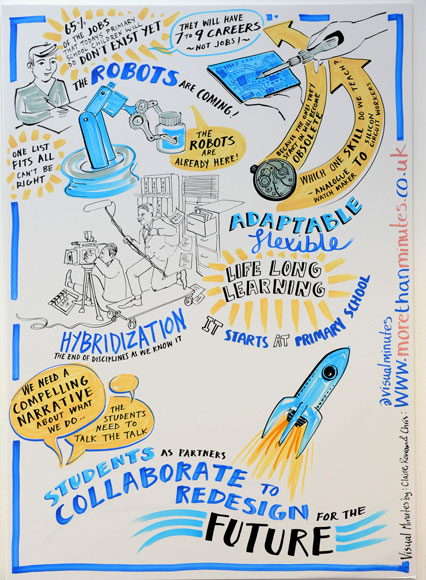 65%
OF THE JOBS
THAT TODAYS PRIMARY
SCHOOL CHILDREN WILL
DO DON'T EXIST YET
THEY WILL HAVE
7 to 9 CAREERS
~ NOT JOBS! ~
THE ROBOTS ARE COMING!
THE
ROBOTS
ARE
ALREADY HERE!
ONE LIST
FITS ALL
CAN'T BE
RIGHT
BECAUSE THE ONES THEY
START WITH WILL BECOME
OBSOLETE
WHICH ONE SKILL DO WE TEACH?
~ ANALOGUE TO SILICON
WATCH MAKER CIRCUIT WORKERS
ADAPTABLE
flexible
LIFE LONG
LEARNING
IT STARTS AT PRIMARY SCHOOL
HYBRIDIZATION
THE END OF DISCIPLINES AS WE KNOW IT
WE NEED A
COMPELLING
NARRATIVE
ABOUT WHAT
WE DO...
THE
STUDENTS
NEED TO
TALK THE TALK
STUDENTS AS PARTNERS
COLLABORATE TO
REDESIGN FOR THE
FUTURE
@visualminutes
www.morethanminutes.co.uk
Visual Minutes by: Claire, Rona and Chris: